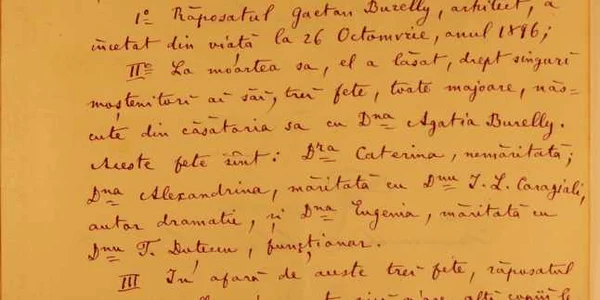 1º Răposatul Gaetan Burelly, arhitect, a
încetat din viață la 26 Octomvrie, anul 1896;
IIº La moartea sa, el a lăsat, drept singuri
moștenitori ai săi, trei fete, toate majoare, năs-
cute din căsătoria sa cu Dna Agatia Burelly.
Aceste fete sînt: Dra Caterina, nemăritată;
Dna Alexandrina, măritată cu Dnu I. L. Caragiali,
autor dramatic, și Dna Eugenia, măritată cu
Dnu T. Duțescu, funcționar.
III In afară de aceste trei fete, răposatul